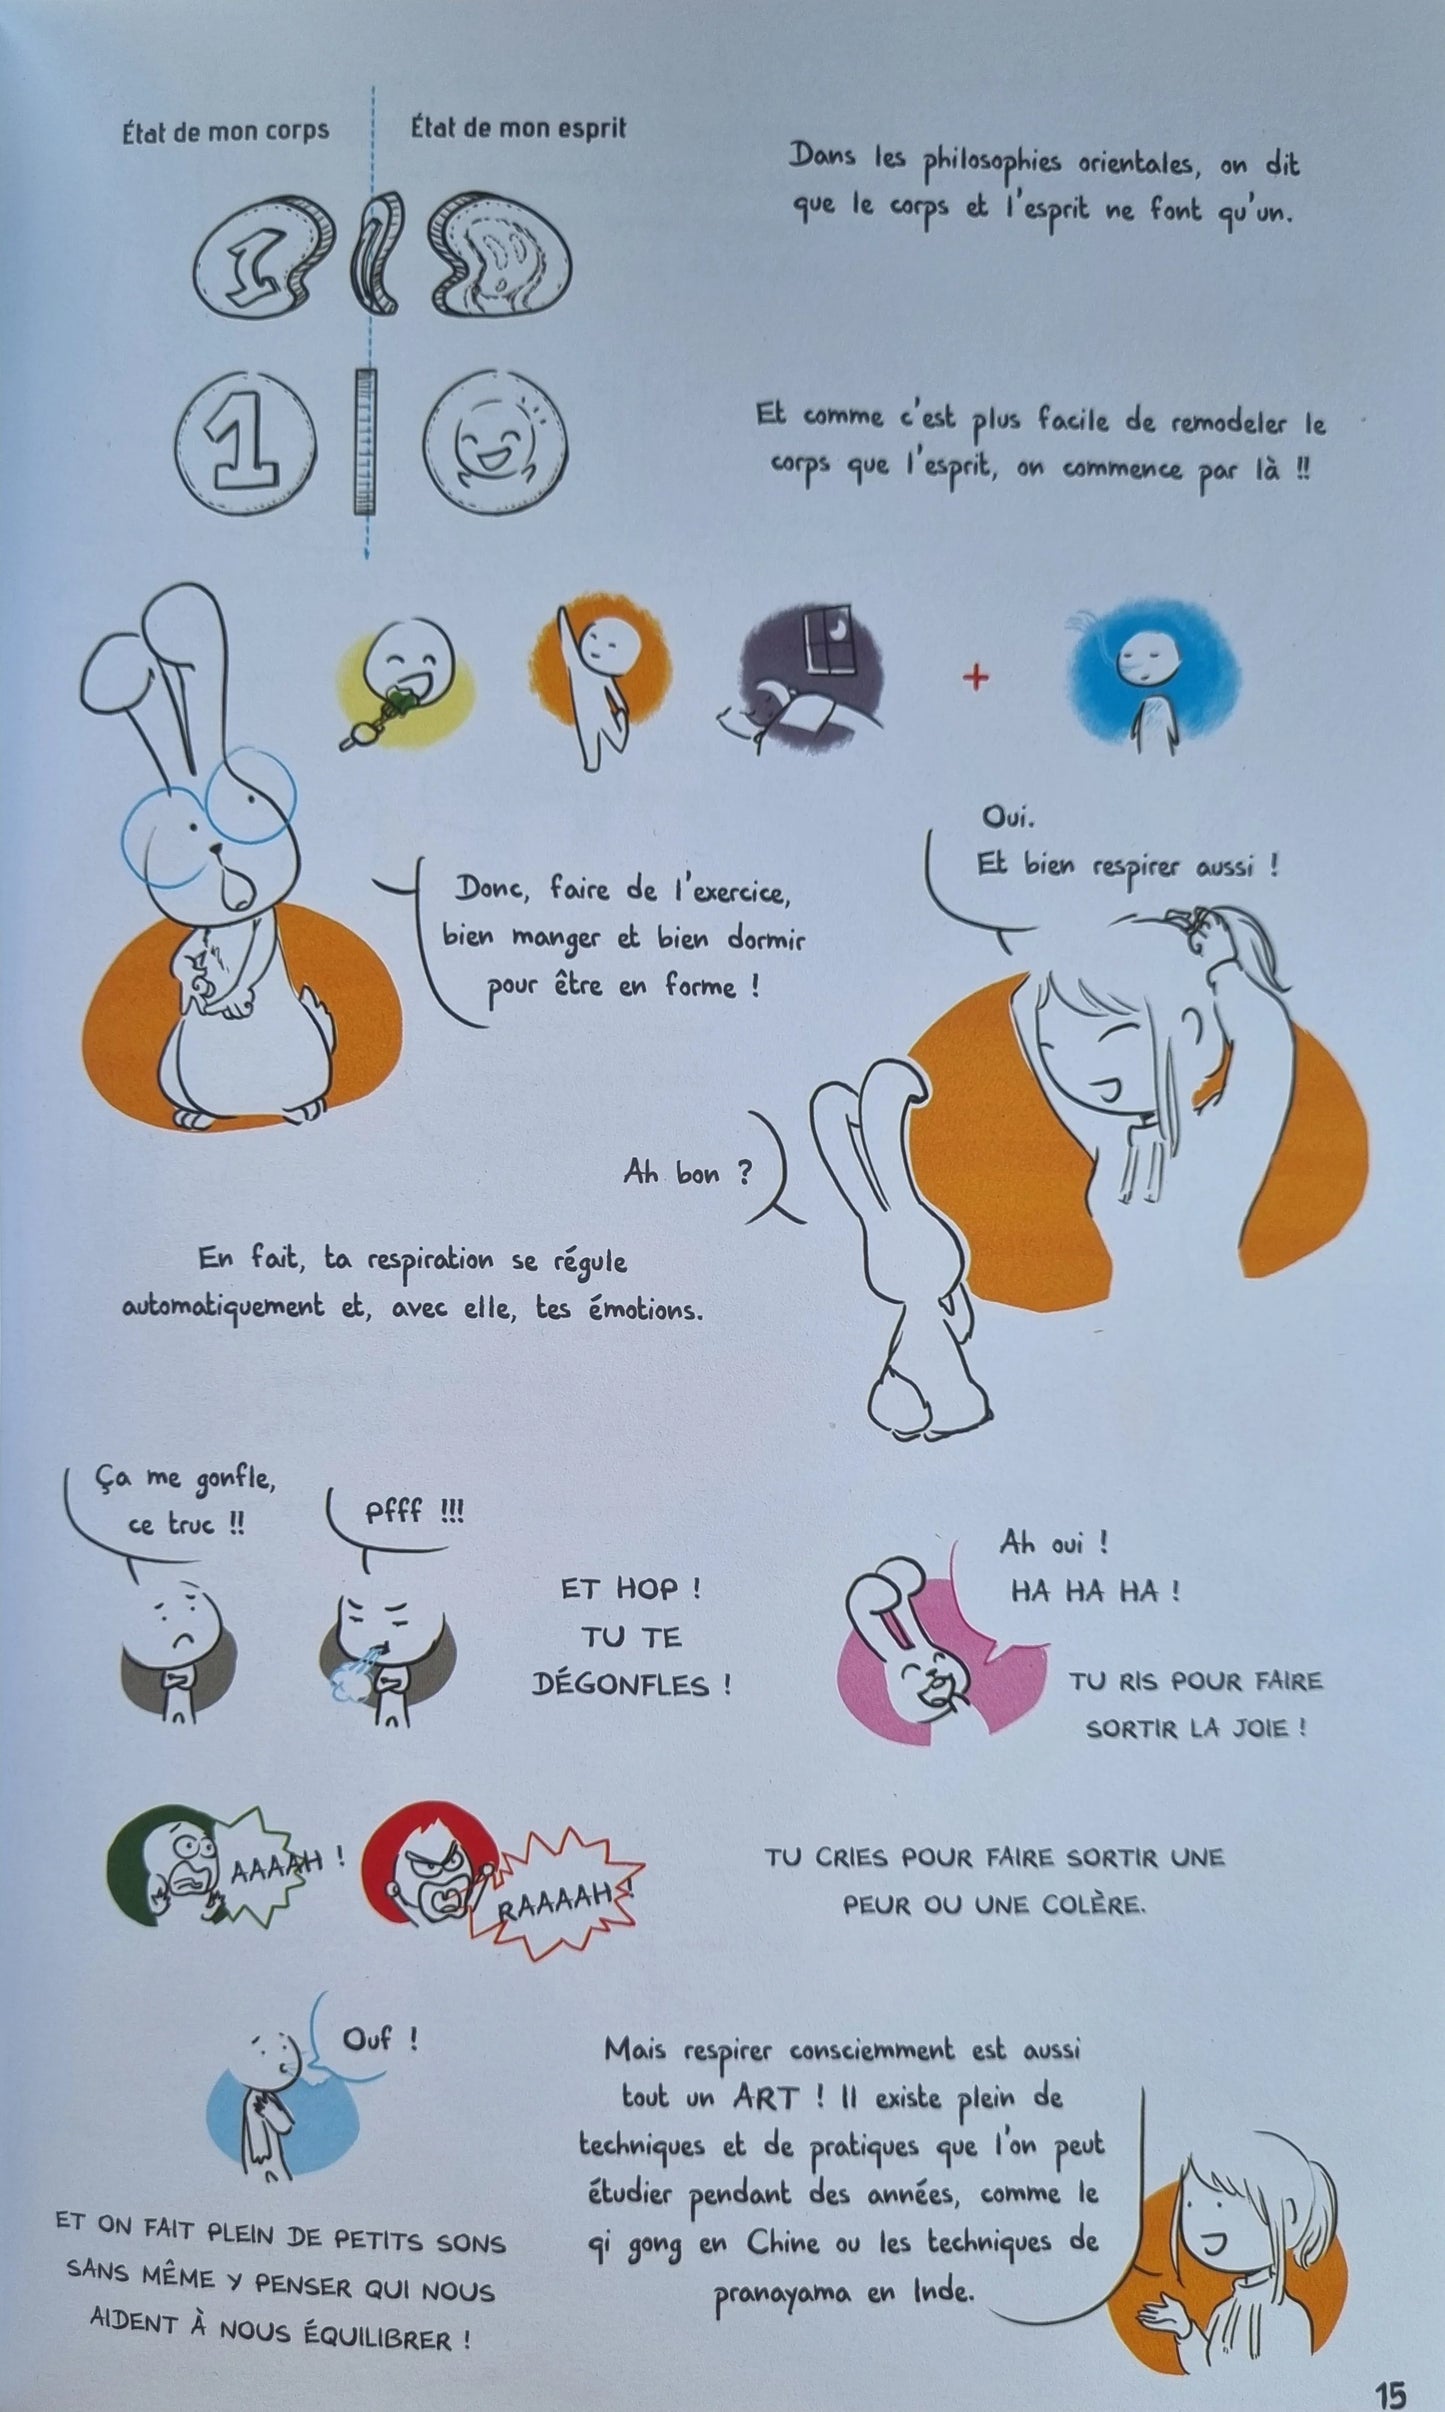 État de mon corps
État de mon esprit
Dans les philosophies orientales, on dit
que le corps et l'esprit ne font qu'un.
1
1
Et comme c'est plus facile de remodeler le
corps que l'esprit, on commence par là !!
+
Donc, faire de l'exercice,
bien manger et bien dormir
pour être en forme !
Oui.
Et bien respirer aussi !
Ah bon ?
En fait, ta respiration se régule
automatiquement et, avec elle, tes émotions.
Ça me gonfle,
ce truc !!
Pfff !!!
ET HOP !
TU TE
DÉGONFLES !
Ah oui !
HA HA HA !
TU RIS POUR FAIRE
SORTIR LA JOIE !
AAAAH !
RAAAAH !
TU CRIES POUR FAIRE SORTIR UNE
PEUR OU UNE COLÈRE.
Ouf !
ET ON FAIT PLEIN DE PETITS SONS
SANS MÊME Y PENSER QUI NOUS
AIDENT À NOUS ÉQUILIBRER !
Mais respirer consciemment est aussi
tout un ART ! Il existe plein de
techniques et de pratiques que l'on peut
étudier pendant des années, comme le
qi gong en Chine ou les techniques de
pranayama en Inde.
15